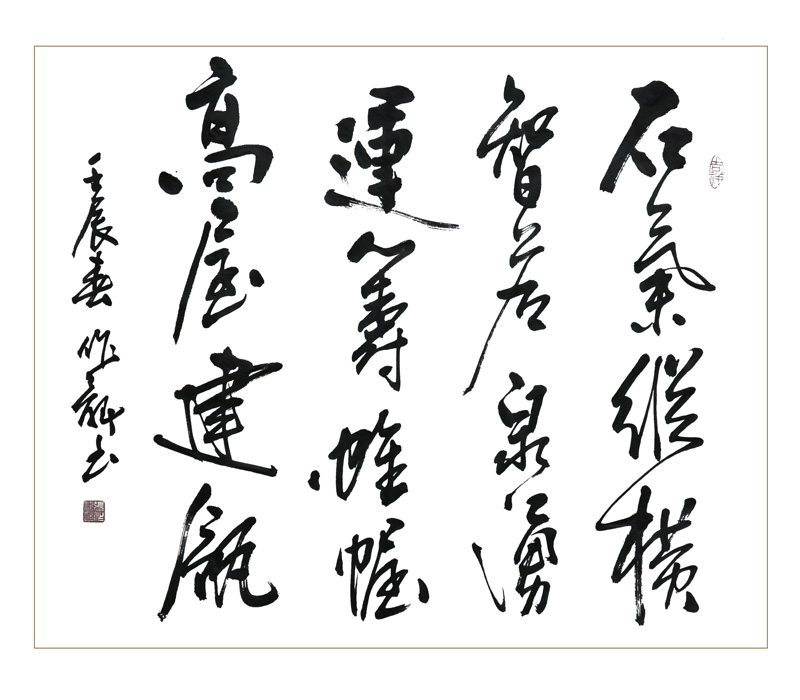 石氣縱橫
智若泉湧
運籌帷幄
高屋建瓴
壬辰春 作